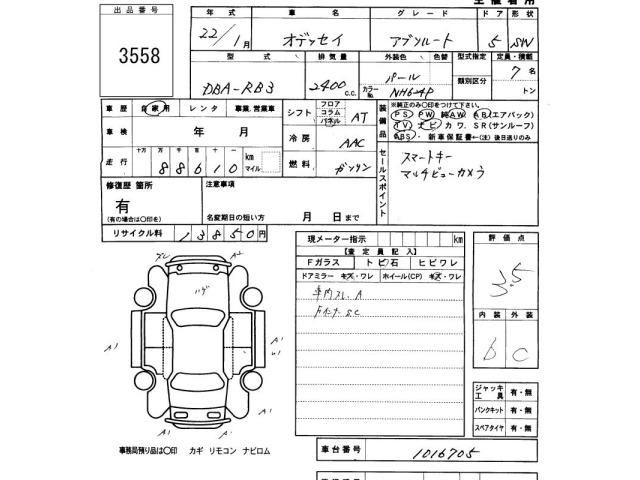 出品番号
3558
年式 車名 グレード ドア 形状
22/1月 オデッセイ アブソルート 5 S/W
型式 排気量 外装色 色替 型式指定 定員・積載
DBA-RB3 2400 c.c. パール 類別区分 7名
カラーNo. NH624P トン
車歴 自家用 レンタ 事業、営業車
車検 年 月
走行 十万 万 千 百 十
88610 km マイル
シフト フロア コラム パネル AT
冷房 AAC
燃料 ガソリン
装備品
※純正のみ〇印をつけて下さい。
PS PW 純AW AB(エアバック)
TV ナビ カワ. SR(サンルーフ)
ABS・新車保証書←(注)後日送りのみ
修復歴 箇所
有
(有の場合は〇印を)
注意事項
名変期日の短い方 月 日まで
セールスポイント
スマートキー
マルチビューカメラ
リサイクル料 13850円
現メーター指示 km
【査定員記入】
Fガラス トビ石 ヒビワレ
ドアミラー キズ・ワレ ホイール(CP) キズ・ワレ
車内スレ A
評価点
3.5
内装 外装
b C
ジャッキ工具 有・無
パンクキット 有・無
スペアタイヤ 有・無
A2
ハゲ
A1
A1
A1
A1
事務局預り品は〇印 カギ リモコン ナビロム
車台番号 1016705